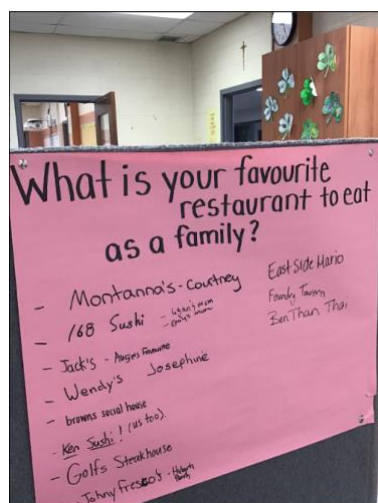 What is your favourite
restaurant to eat
as a family?
- Montanna's - Courtney
- 168 Sushi - mom
- Jack's - Favourite
- Wendy's Josephine
- browns social house
- Ken Sushi! (us too).
- Golfs Steakhouse
- Johny Fresco's - Family
East Side Mario
Family Tavern
Ben Than Thai